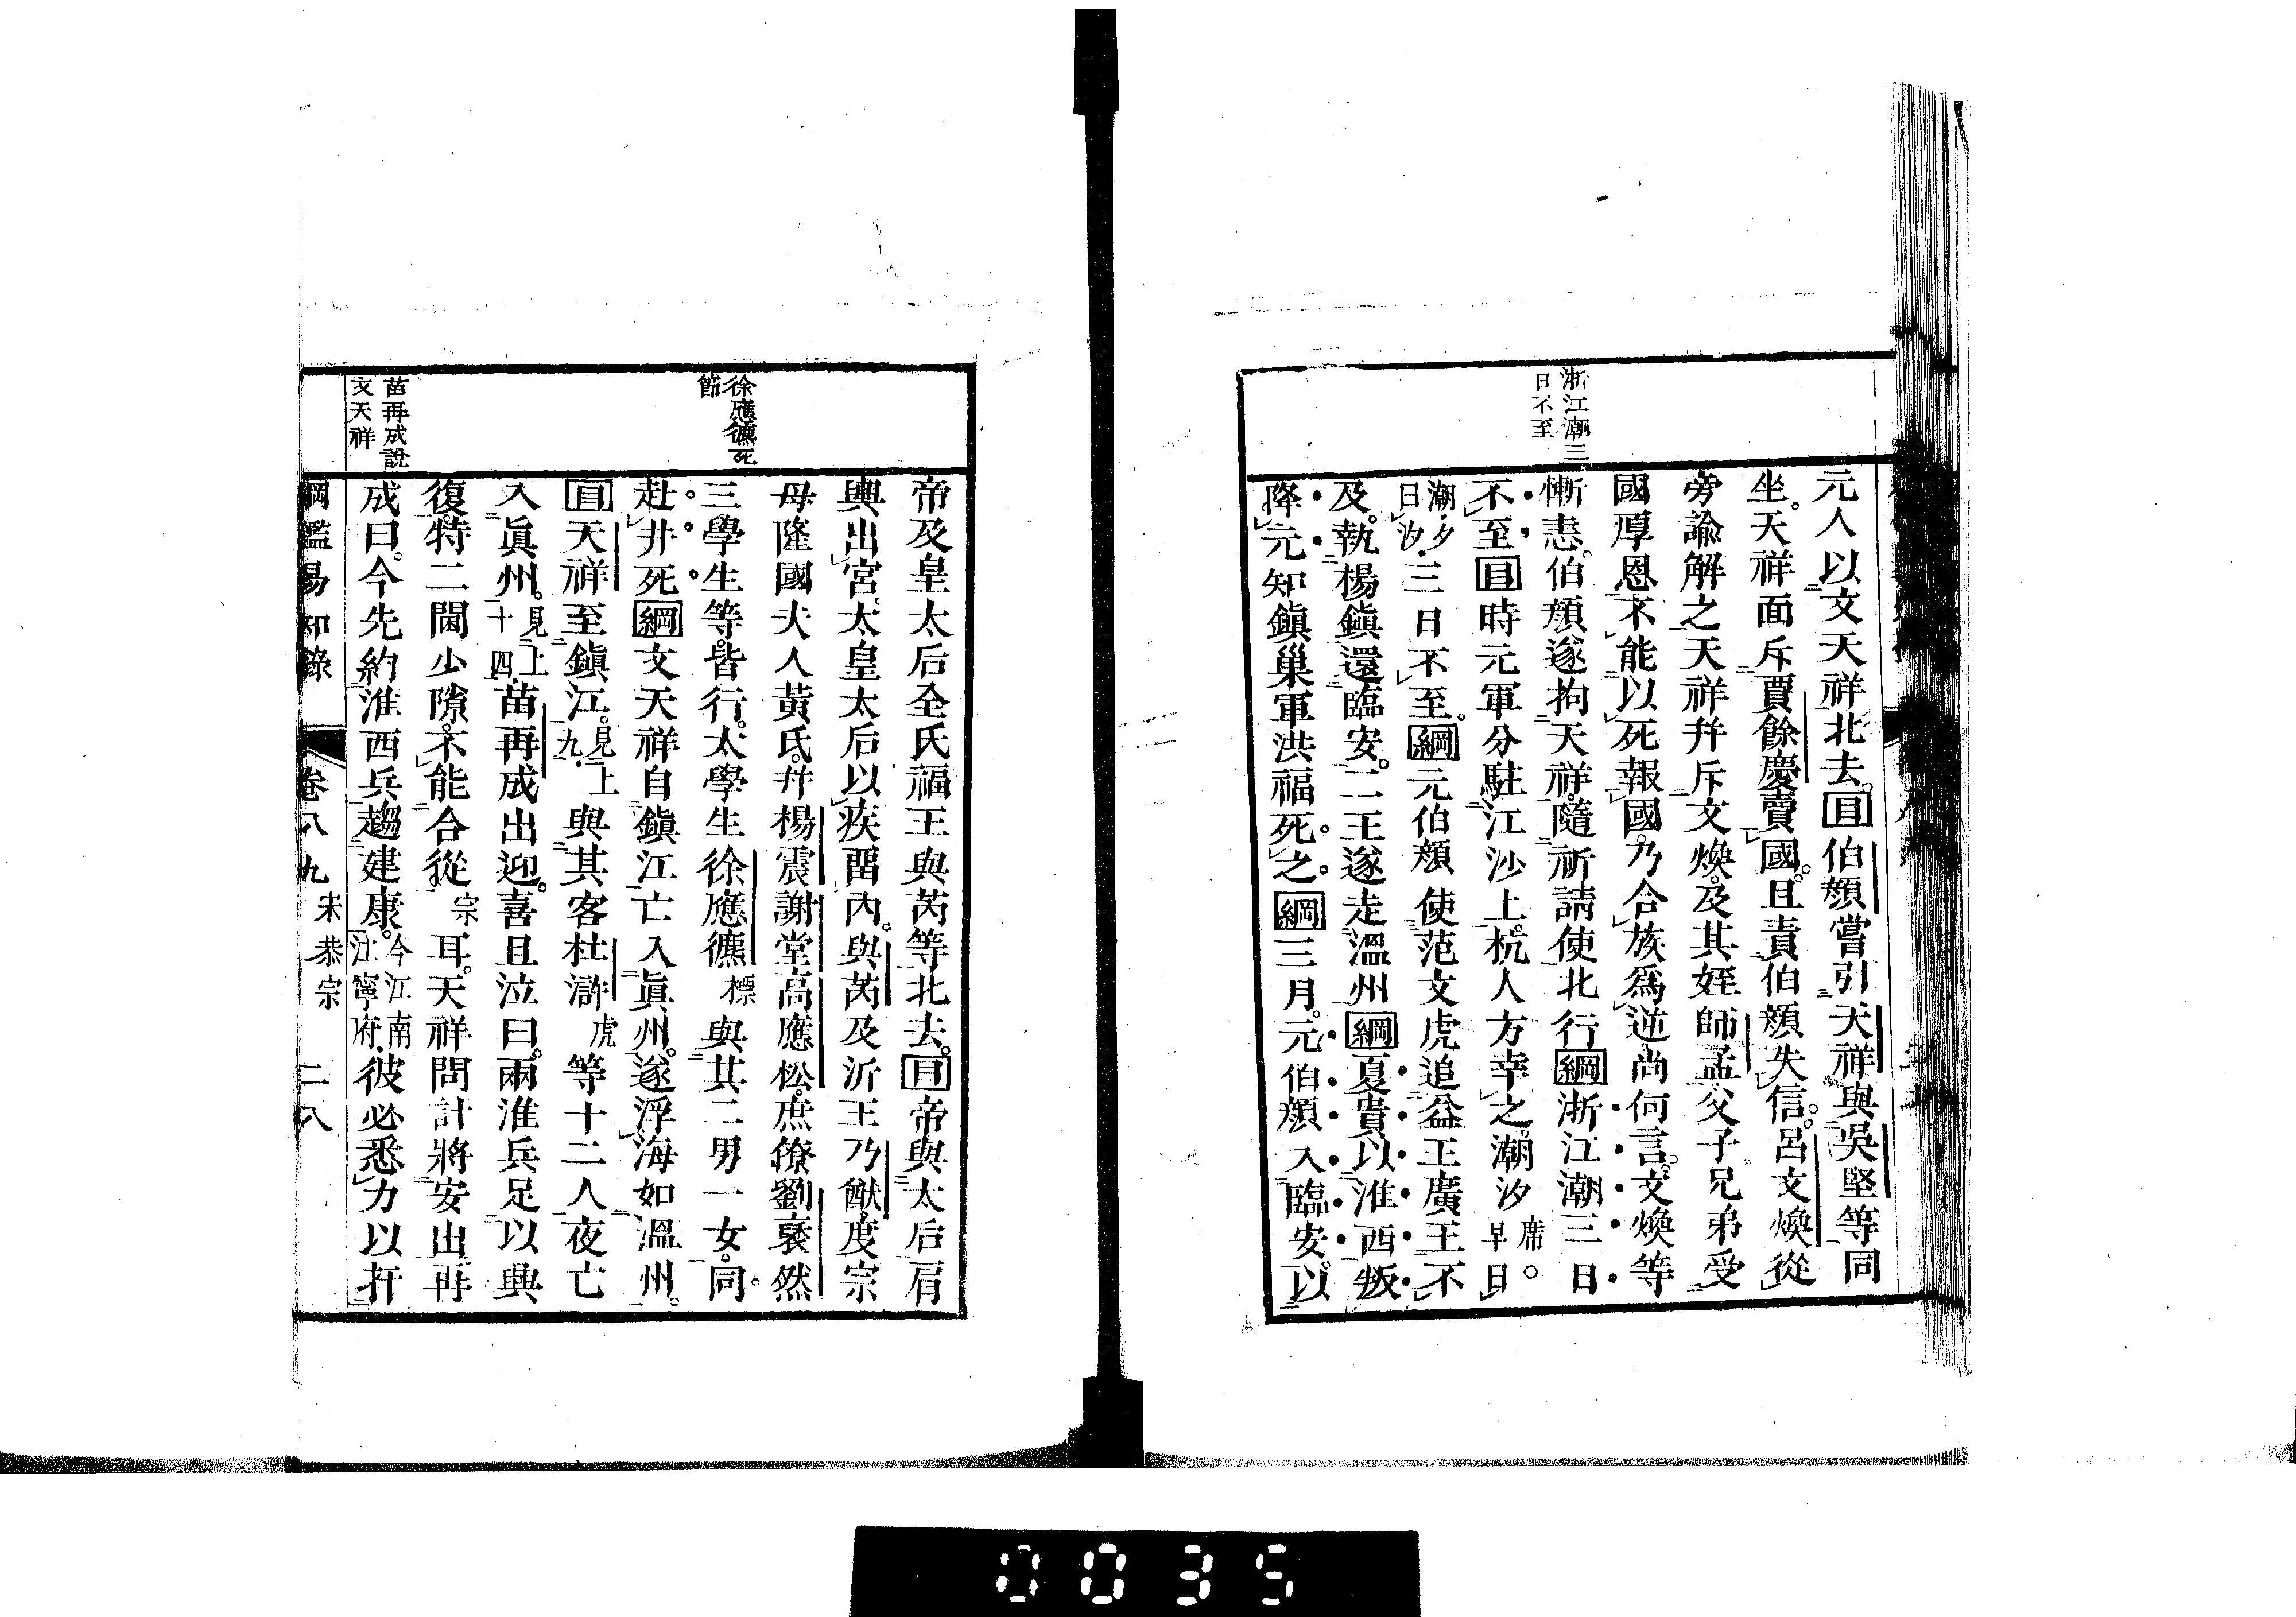 浙江潮三
日不至
元人以文天祥北去。目伯顏嘗引天祥與吳堅等同
坐。天祥面斥賈餘慶賣國。且責伯顏失信。呂文煥從
旁諭解之天祥幷斥文煥。及其姪師孟父子兄弟受
國厚恩。不能以死報國。乃合族爲逆。尚何言。文煥等
慚恚。伯顏遂拘天祥。隨祈請使北行綱浙江潮三日
不至目時元軍分駐江沙上。杭人方幸之。潮汐席。早日
潮。夕日汐。三日不至。綱元伯顏使范文虎追益王廣王不
及。執楊鎭還臨安。二王遂走溫州綱夏貴以淮西叛
降元知鎭巢軍洪福死之。綱三月。元伯顏入臨安。以
徐應鑣死
節
苗再成說
文天祥
帝及皇太后全氏福王與芮等北去。目帝與太后肩
輿出宮。太皇太后以疾留內。與芮及沂王乃猷。度宗
母隆國夫人黃氏。幷楊震謝堂高應松。庶僚劉裦然
三學生等。皆行。太學生徐應鑣標與其二男一女。同
赴井死綱文天祥自鎭江亡入眞州。遂浮海如溫州。
目天祥至鎭江。見上九。與其客杜滸虎等十二人夜亡
入眞州。見上十四。苗再成出迎。喜且泣曰。兩淮兵足以興
復。特二閫少隙。不能合從宗耳。天祥問計將安出再
成曰。今先約淮西兵趨建康。今江南江寧府。彼必悉力以扞
綱鑑易知錄 卷八九 宋恭宗 二八
0035